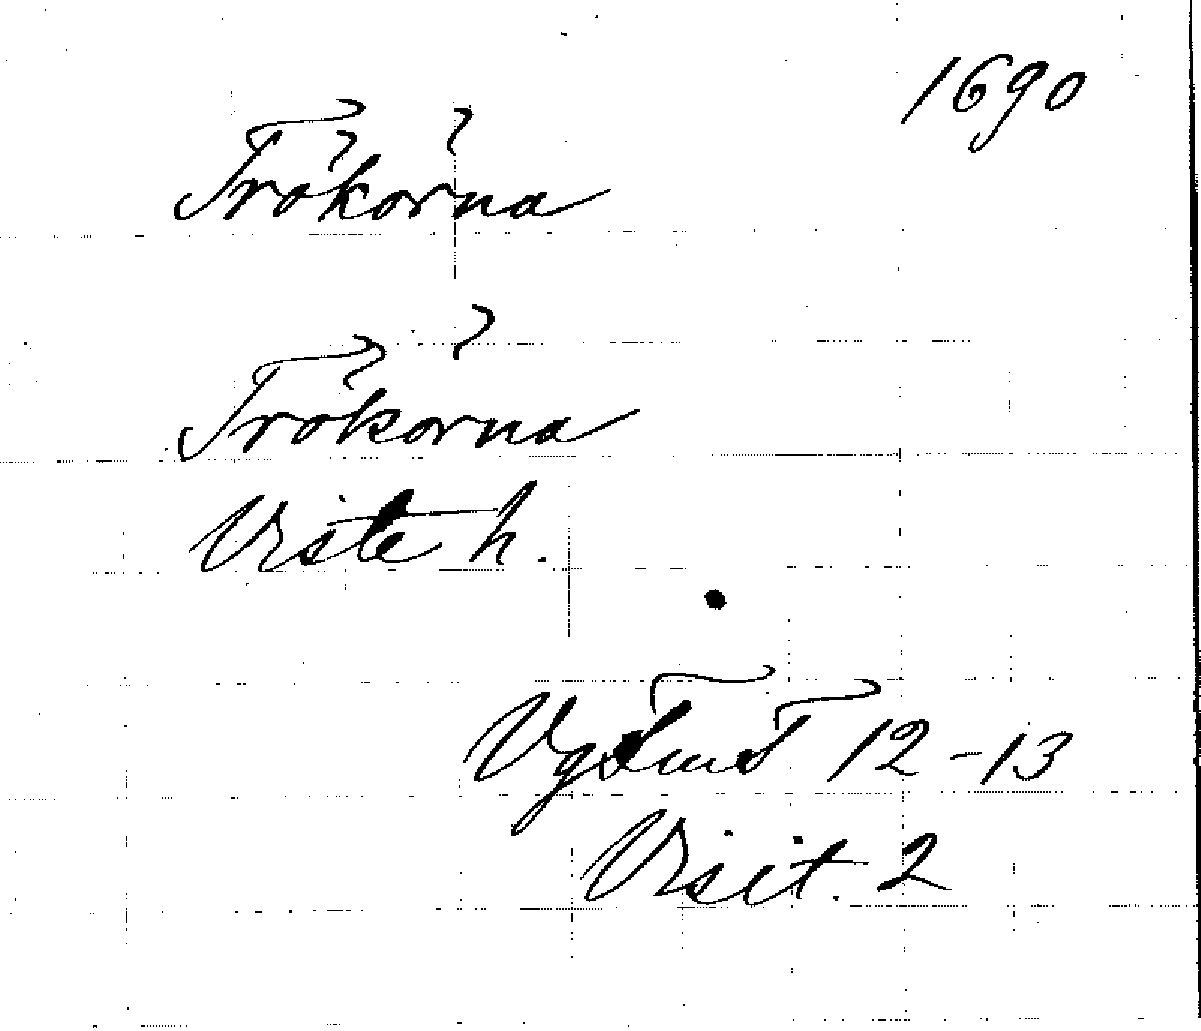 1690
Trökörna
Trökörna
Viste h.
VgFmT 12-13
Visit. 2